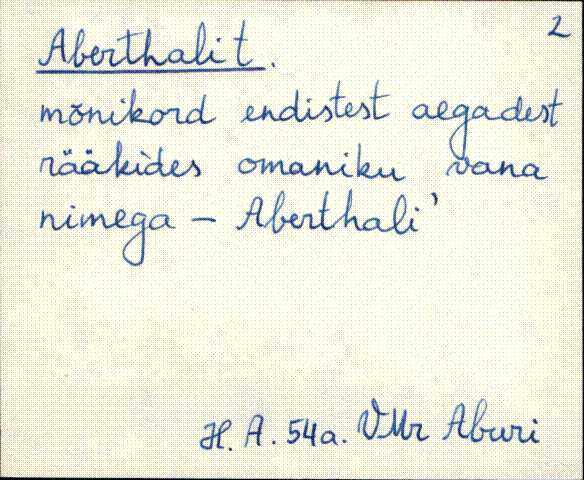 2
Aberthali t.
mõnikord endistest aegadest
rääkides omaniku vana
nimega – Aberthali'
H. A. 54a. VMr Aburi